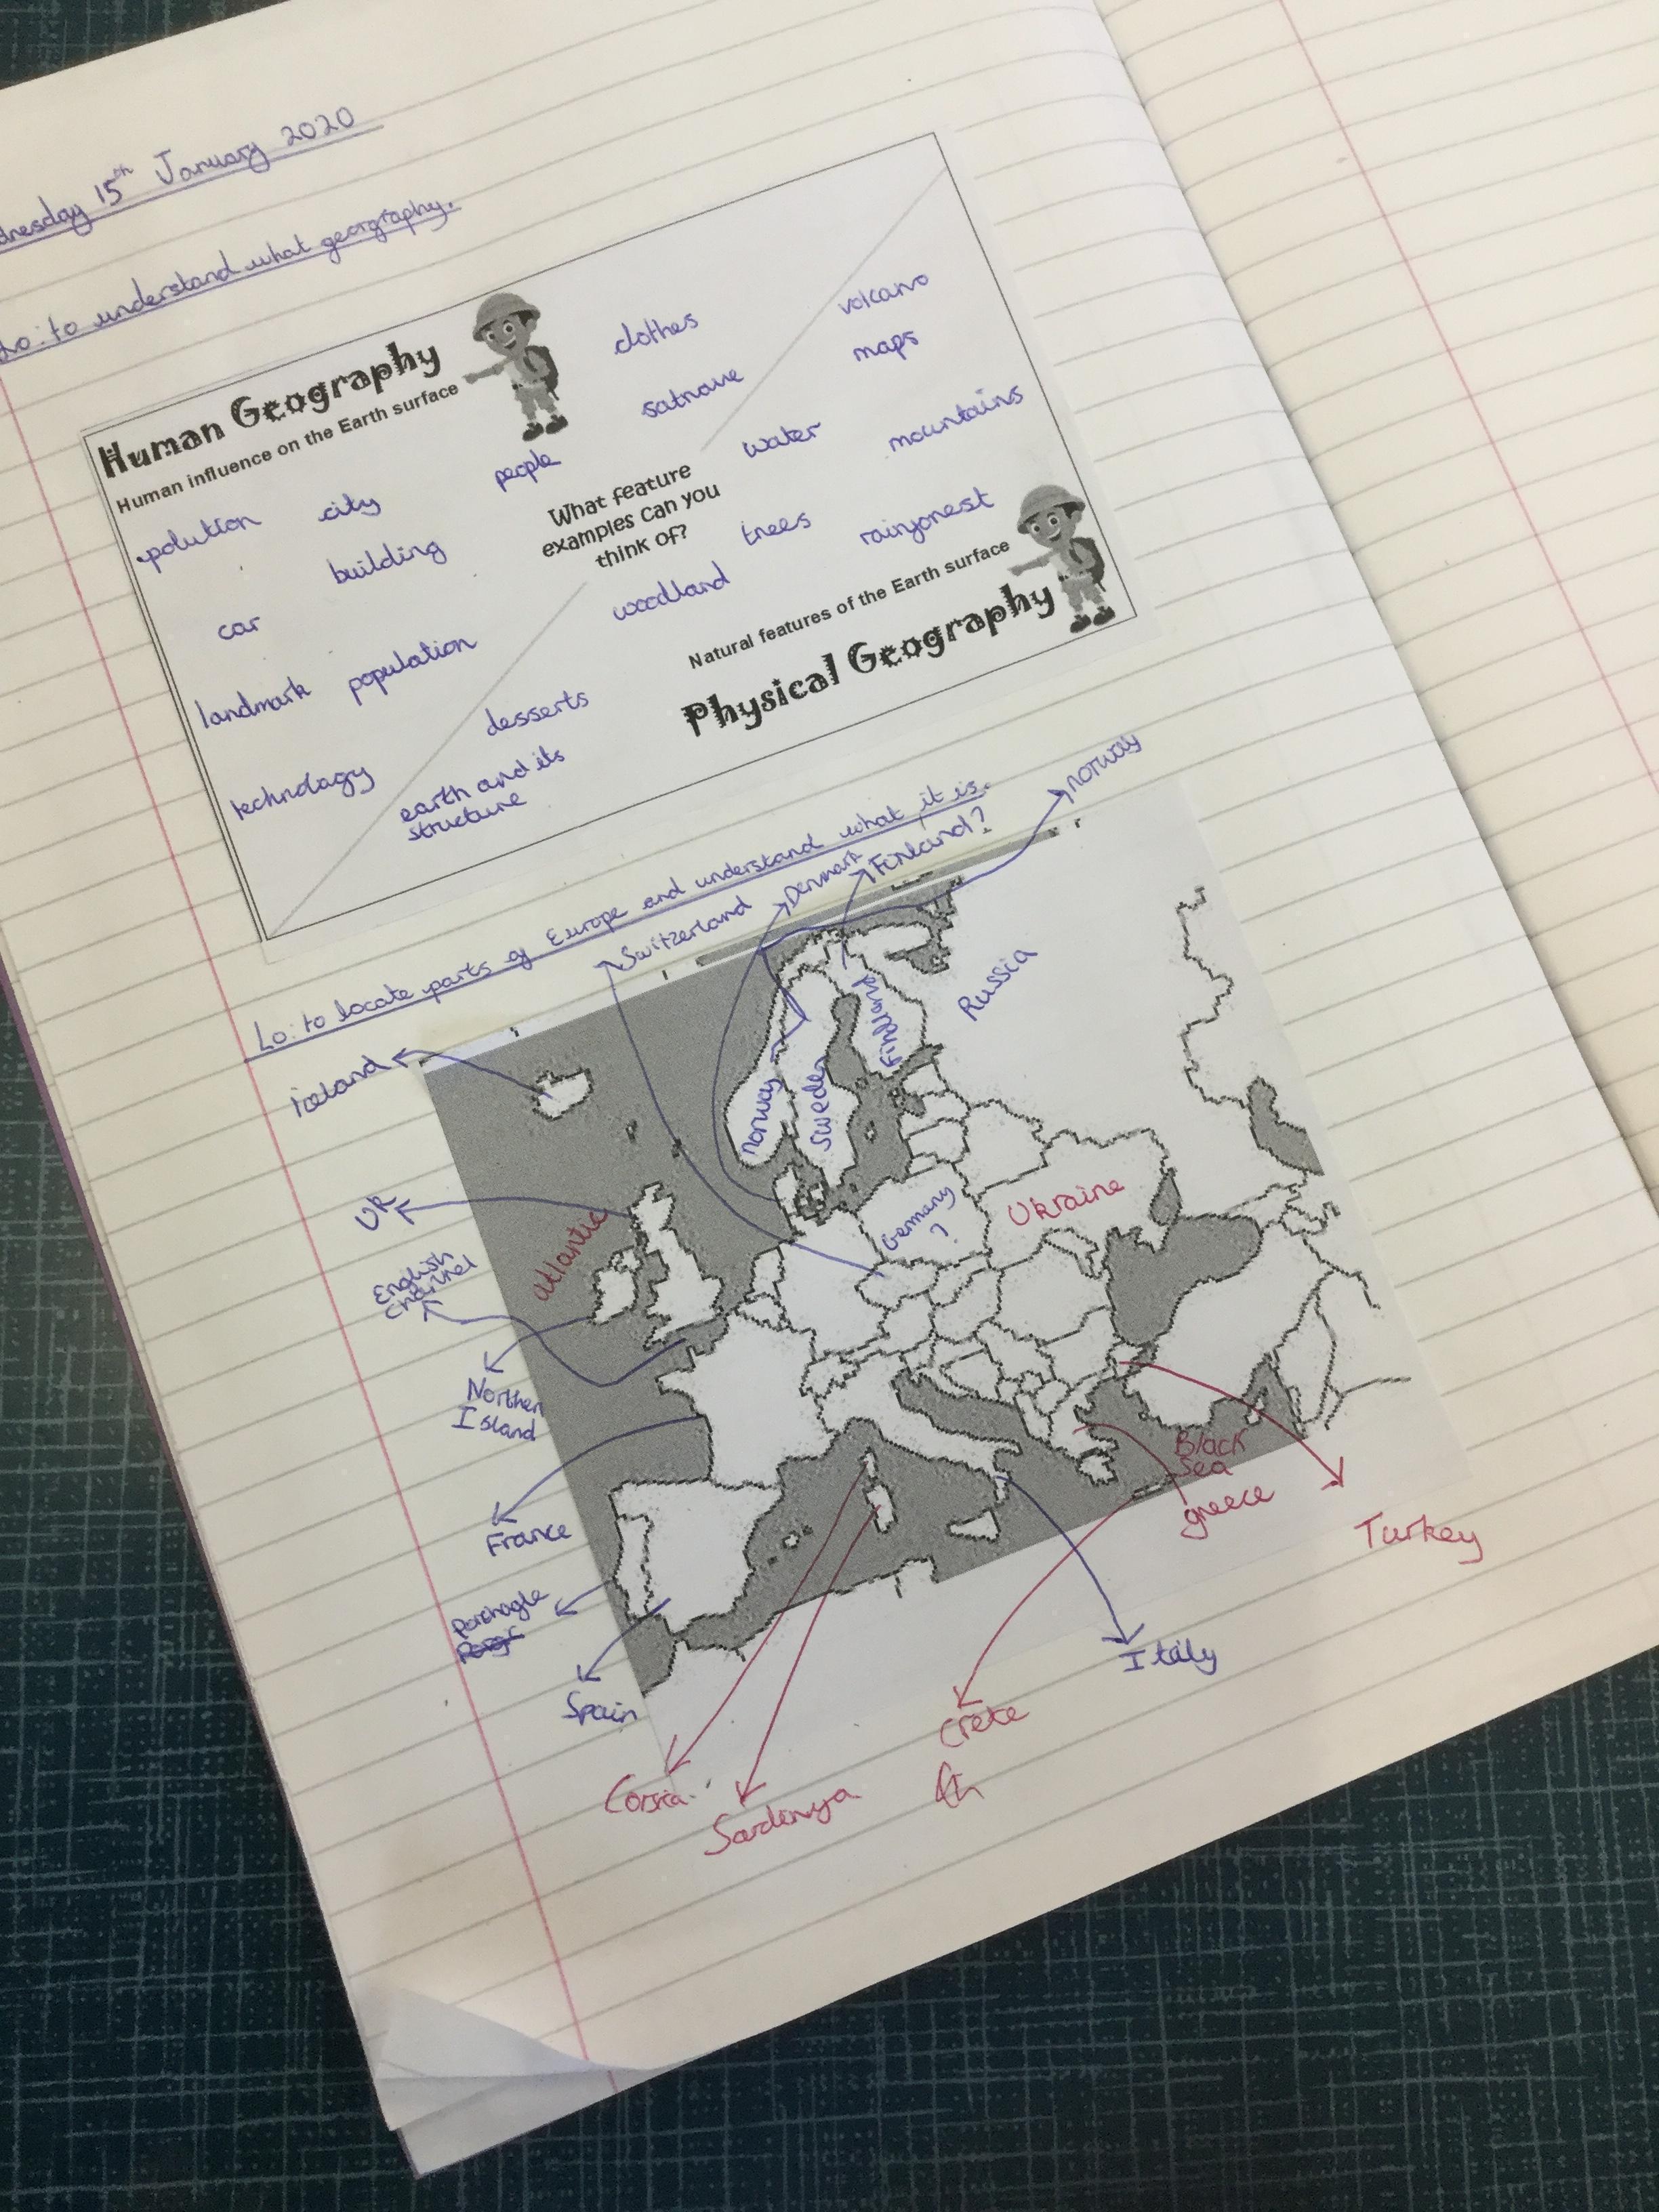 dnesday 15th January 2020
Lo: to understand what georgraphy.
Human Geography
Human influence on the Earth surface
clothes
satnave
people
polution
city
building
car
landmark
population
technology
What feature
examples can you
think of?
volcano
maps
water
mountains
trees
rainforest
woodland
desserts
earth and its
structure
Natural features of the Earth surface
Physical Geography
Lo: to locate parts of Europe and understand what it is.
Switzerland
Denmark
Finland?
norway
iceland
Russia
norway
Sweden
Finland
UK
atlantic
Germany
?
Ukraine
English
Channel
Northen
Island
France
Porchagle
Spain
Black
Sea
greece
Turkey
Itily
Crete
Corsia
Sardinya